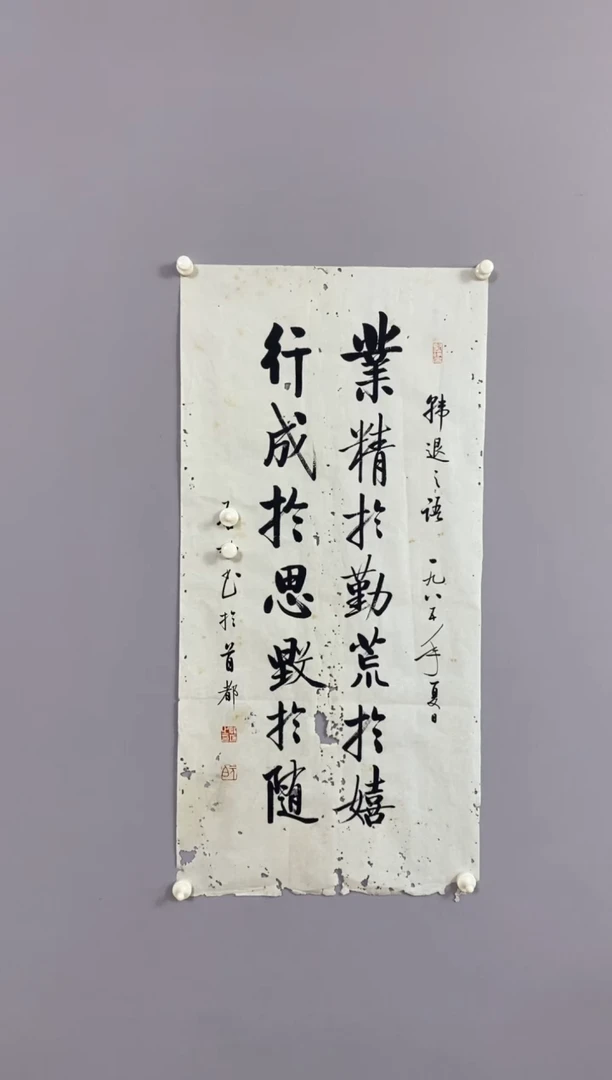 韩退之语 一九八五年夏日
業精於勤荒於嬉
行成於思毁於随
书於首都